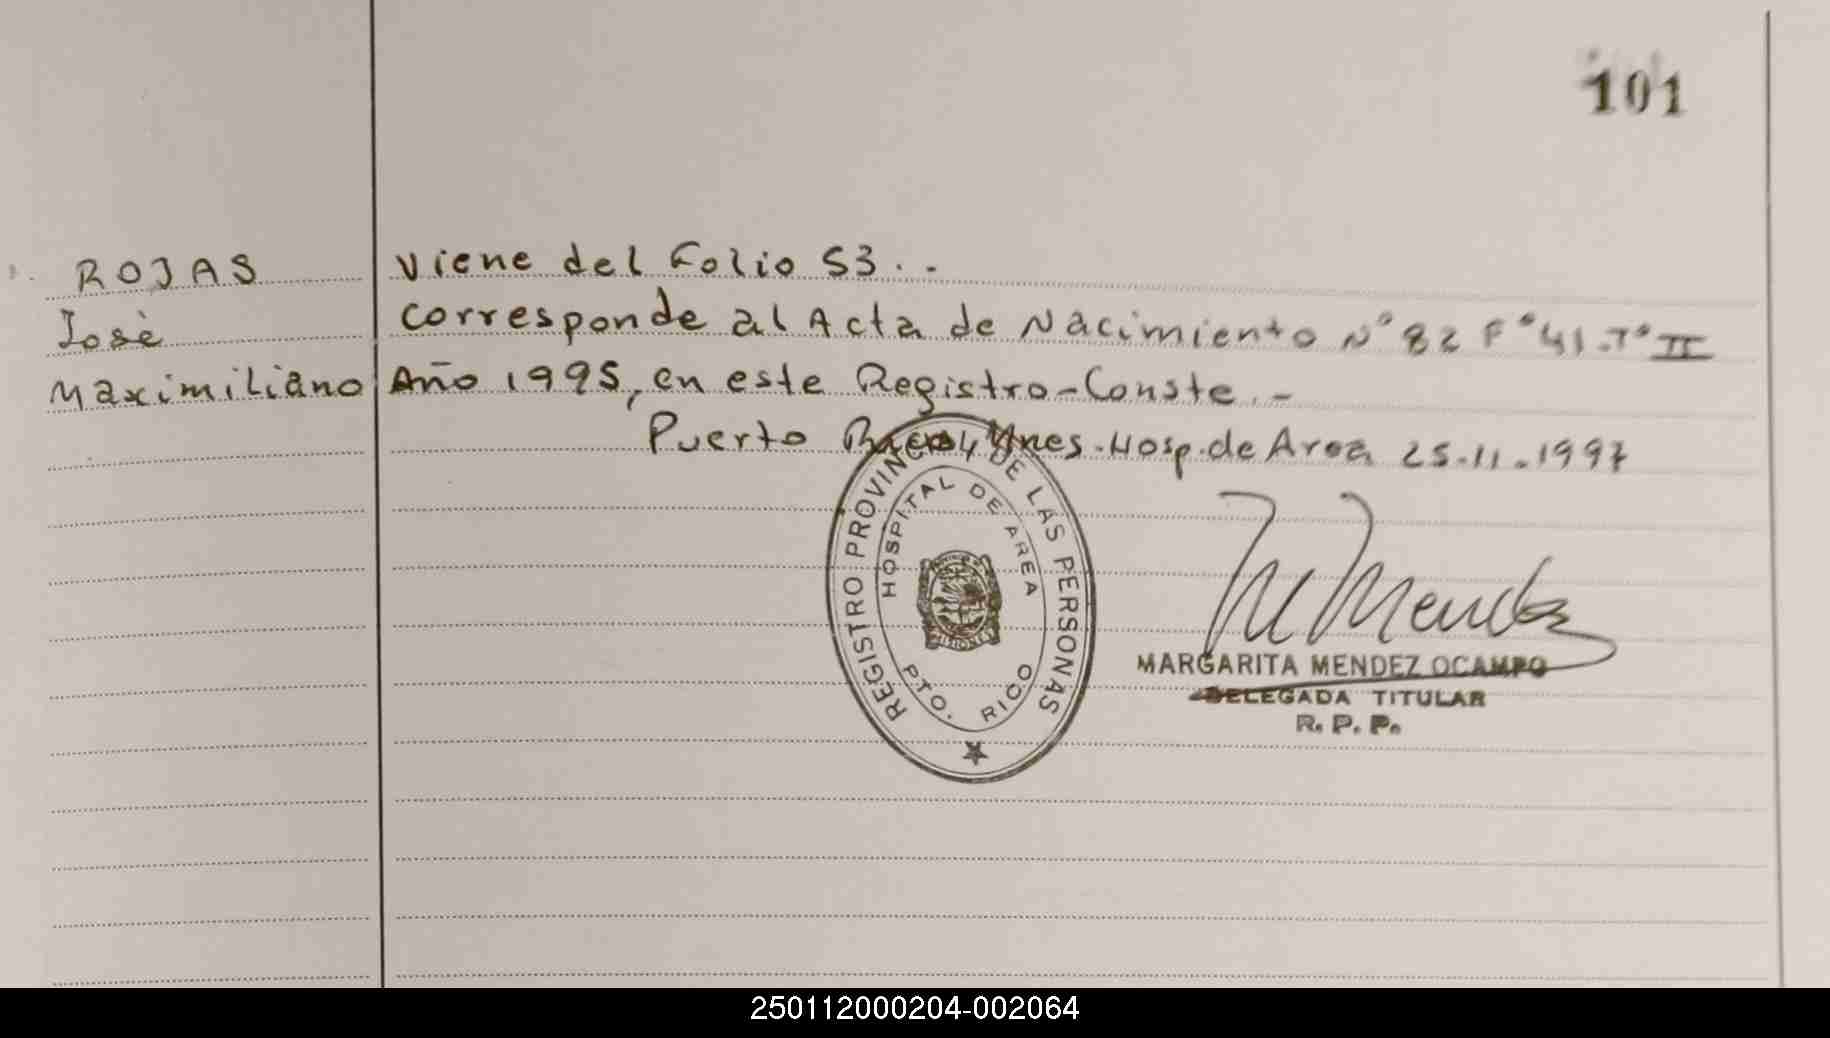 101
ROJAS
José
Maximiliano
Viene del Folio 53..
Corresponde al Acta de Nacimiento N° 82 F° 41.T° II
Año 1995, en este Registro-Conste.-
Puerto Rico, Mnes.Hosp.de Area 25.11.1997
REGISTRO PROVINCIAL DE LAS PERSONAS
HOSPITAL DE AREA
PTO. RICO
MISIONES
M Mendez
MARGARITA MENDEZ OCAMPO
DELEGADA TITULAR
R. P. P.
250112000204-002064